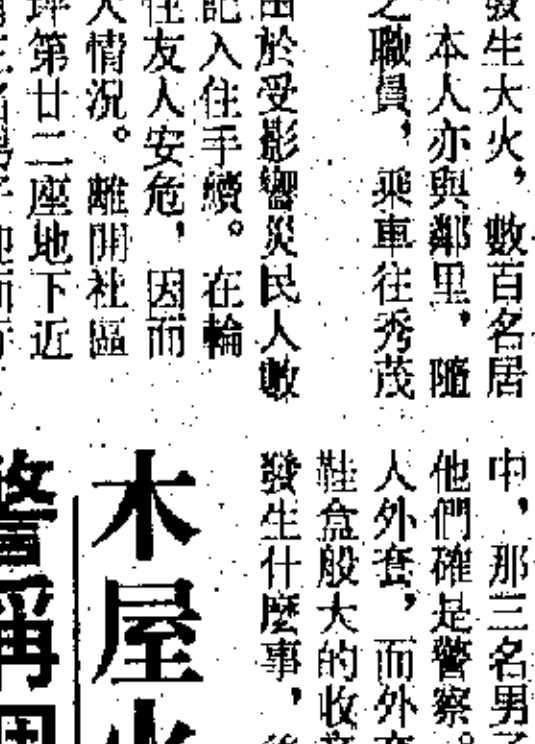 發生大火，數百名居
本人亦與鄰里，隨
之職員，乘車往秀茂
由於受影響災民人數
記入住手續。在輪
住友人安危，因而
人情況。離開社區
坪第廿二座地下近
中，那三名男子
他們確是警察。
人外套，而外套
鞋盒般大的收音
發生什麼事，後
木屋火
警稱